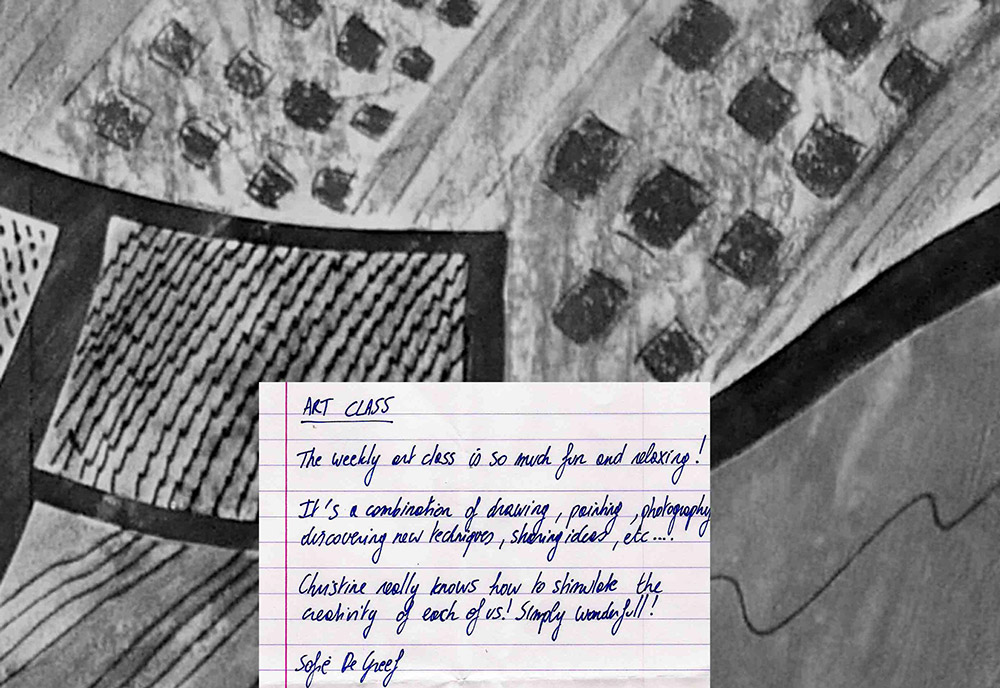 ART CLASS
The weekly art class is so much fun and relaxing!
It's a combination of drawing, painting, photography
discovering new techniques, sharing ideas, etc....!
Christine really knows how to stimulate the
creativity of each of us! Simply wonderfull!
Sofie De Greef